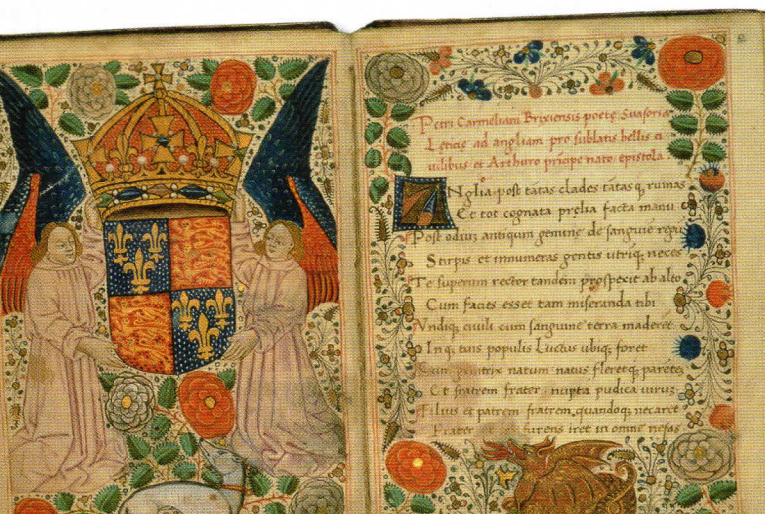 Petri Carmeliani Brixiensis poetę Suasoria
Leticię ad angliam pro sublatis bellis ci
uilibus et Arthuro pricipe nato epistola.
ANglia post tātas clades tātasq ruinas
Et tot cognata prelia facta manu
Post odiuȝ antiquȝ geminę de sanguie regū
Stirpis et innumeras gentis utriq neces
Te superum rector tandem prospexit ab alto
Cum facies esset tam miseranda tibi
Vndiq ciuili cum sanguine terra maderet
Inq tuis populis Luctus ubiq foret
natum natus fleretq parētē
Et fratrem frater nupta pudica uirūȝ
Filius et patrem fratrem quandoq necaret
Frater furens iret in omne nefas